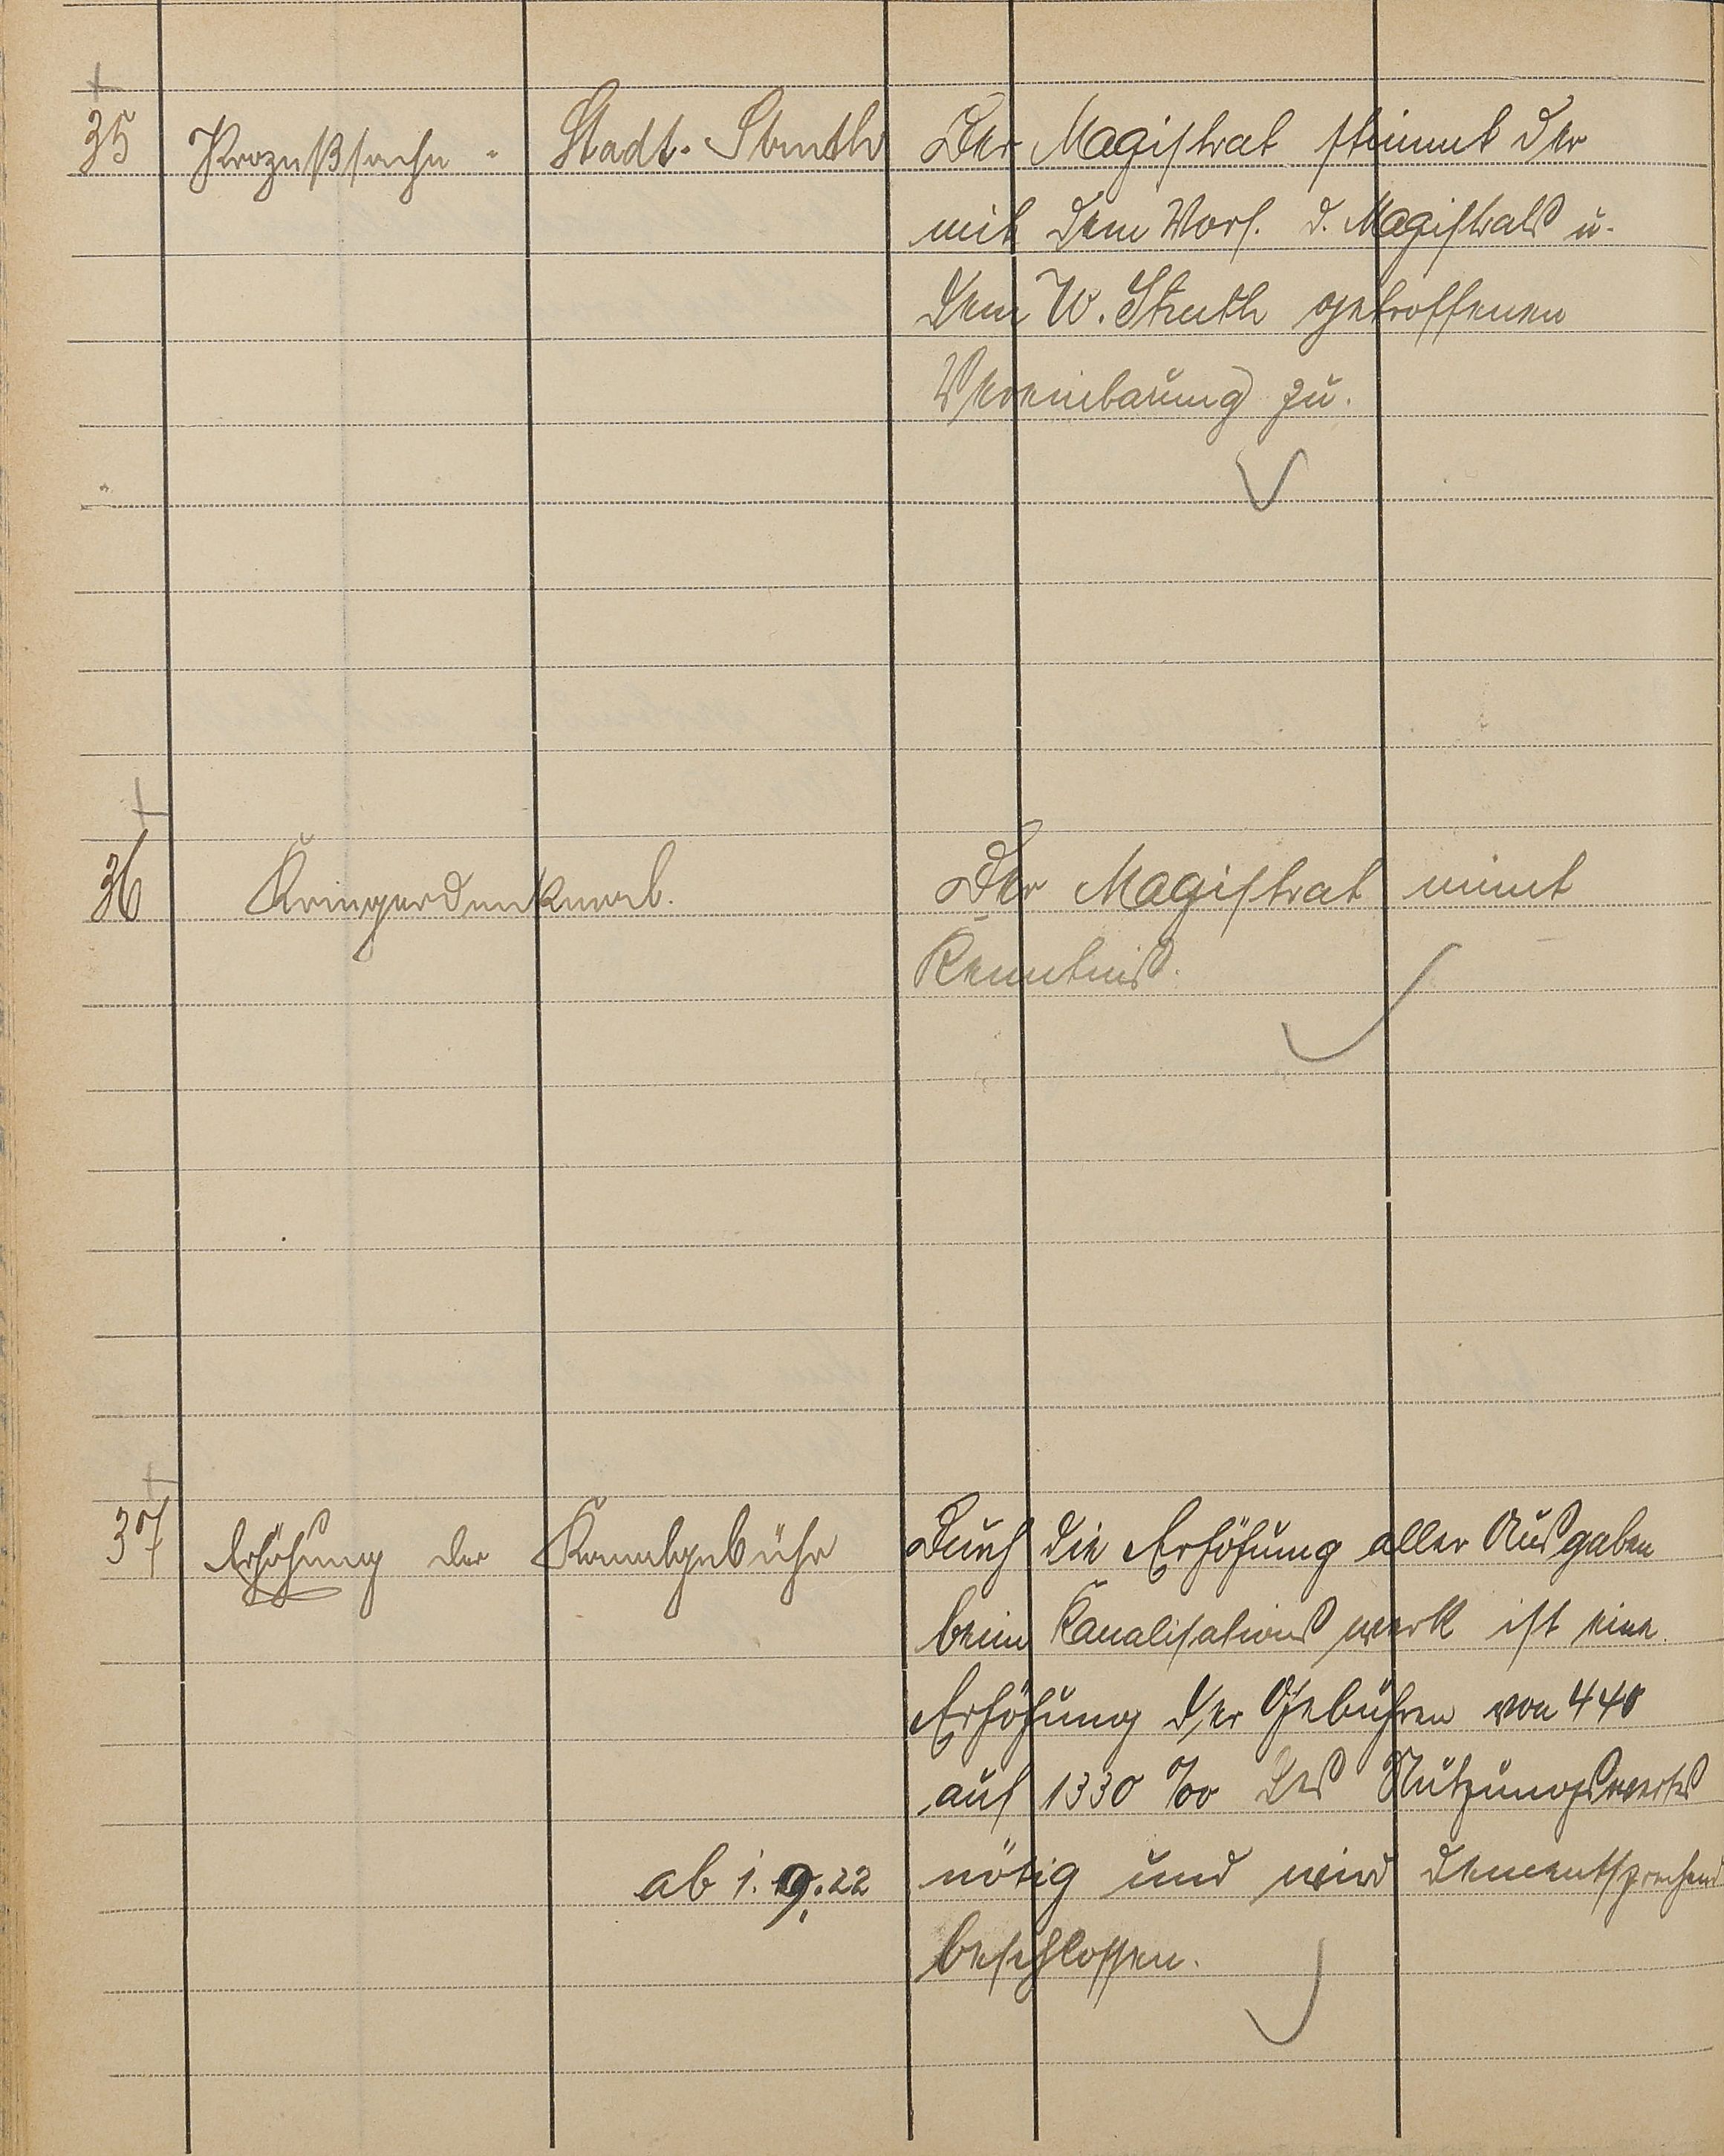 35 Prozeßsache - Stadt - Struth Der Magistrat stimmt der
mit dem Vors. d. Magistrats u.
dem W. Struth getroffenen
Vereinbarung zu.
36 Kriegerdenkmal. Der Magistrat nimt
Kenntniß.
37 Erhöhung der Kanalgebühr Durch die Erhöhung aller Ausgaben
beim Kanalisationswerk ist eine
Erhöhung der Gebühren von 440
auf 1330 ‰ des Nutzungswertes
ab 1. 9. 22 nötig und wird dementsprechend
beschlossen.